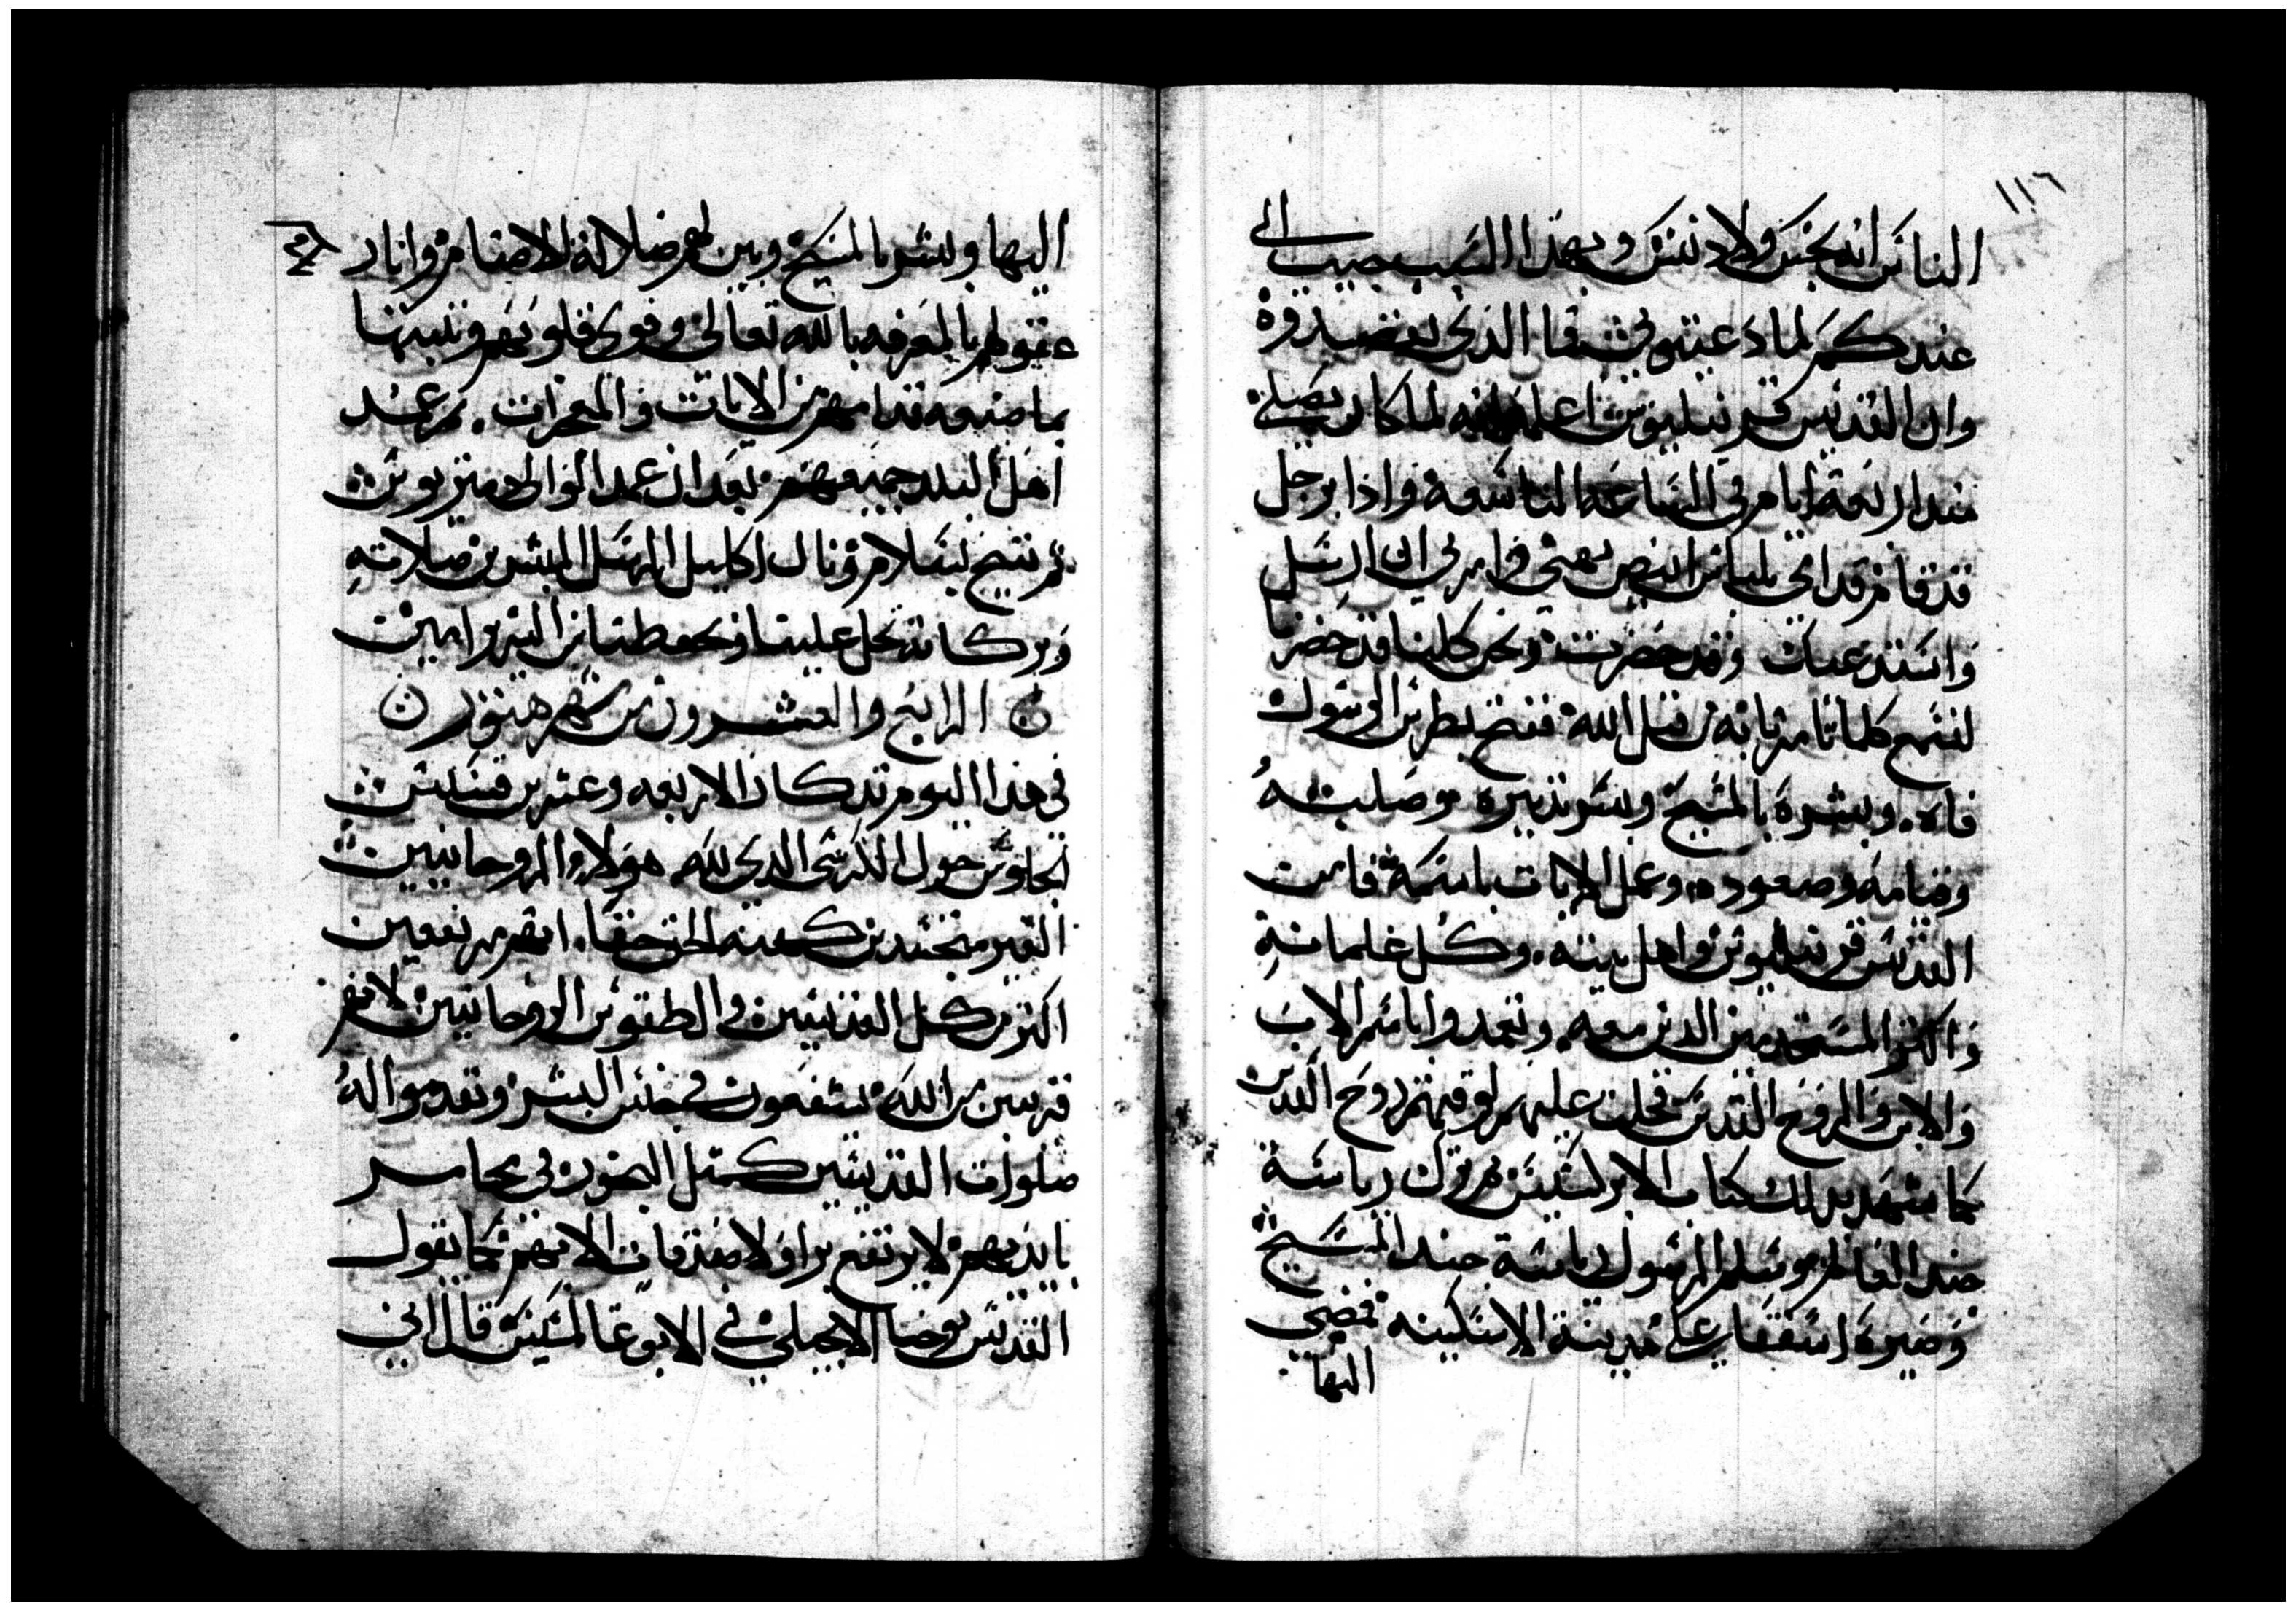 ١١٦
الناس انه نجس ولا دنس وبهذا السبب جيت الى
عندكم لما دعيتوني فما الذي تقصدوه
وان القديس قرنيليوس اعلمه انه لما كان يصلي
منذ اربعة ايام في الساعة التاسعة واذا برجل
قد قام قدامي بلباس ابيض بهي وامرني ان ارسل
واستدعيك وقد حضرت ونحن كلنا قد حضرنا
لنسمع كلما تامرنا به من قبل الله ففتح بطرس الرسول
فاه. وبشره بالمسيح وبسر تدبيره وصلبته
وقيامه وصعوده. وعمل الايات باسمه فامن
القديس قرنيليوس واهل بيته. وكل غلمانه
واكثر المستخدمين الذين معه. وتعمدوا باسم الاب
والابن والروح القدس فحلت عليهم لوقتهم روح القدس
كما شهد بذلك كتاب الابركسيس ثم ترك رياسة
جند العالم وسلم الرسول رياسة جند المسيح
وصيره اسقفا على مدينة الاسكينه فمضى
اليها
اليها وبشر بالمسيح وبين لهم ضلالة الاصنام وانار
عقولهم بالمعرفه بالله تعالى وقوى قلوبهم وثبتها
بما صنعه قدامهم من الايات والمعجزات. ثم عمد
اهل البلد جميعهم بعد ان عمد الوالي دمتريوس
ثم تنيح بسلام ونال اكليل الرسل المبشرين صلاته
وبركاته تحل علينا وتحفظنا من الشرير امين
الرابع والعشرون من شهر هتور
في هذا اليوم تذكار الاربعه وعشرين قسيس
الجلوس حول الكرسي الذي لله هولاء الروحانيين
الغير متجسدين كهنه الحق حقا. انهم مرتفعين
اكثر من كل القديسين والطقوس الروحانيين لانهم
قريبين من الله يشفعون في جنس البشر وتقدموا له
صلوات القديسين كمثل البخور في مجامر
بايديهم لا يرتفع برا ولا صدقات الا بهم كما يقول
القديس يوحنا الانجيلي في الابوغالمسيس قال اني